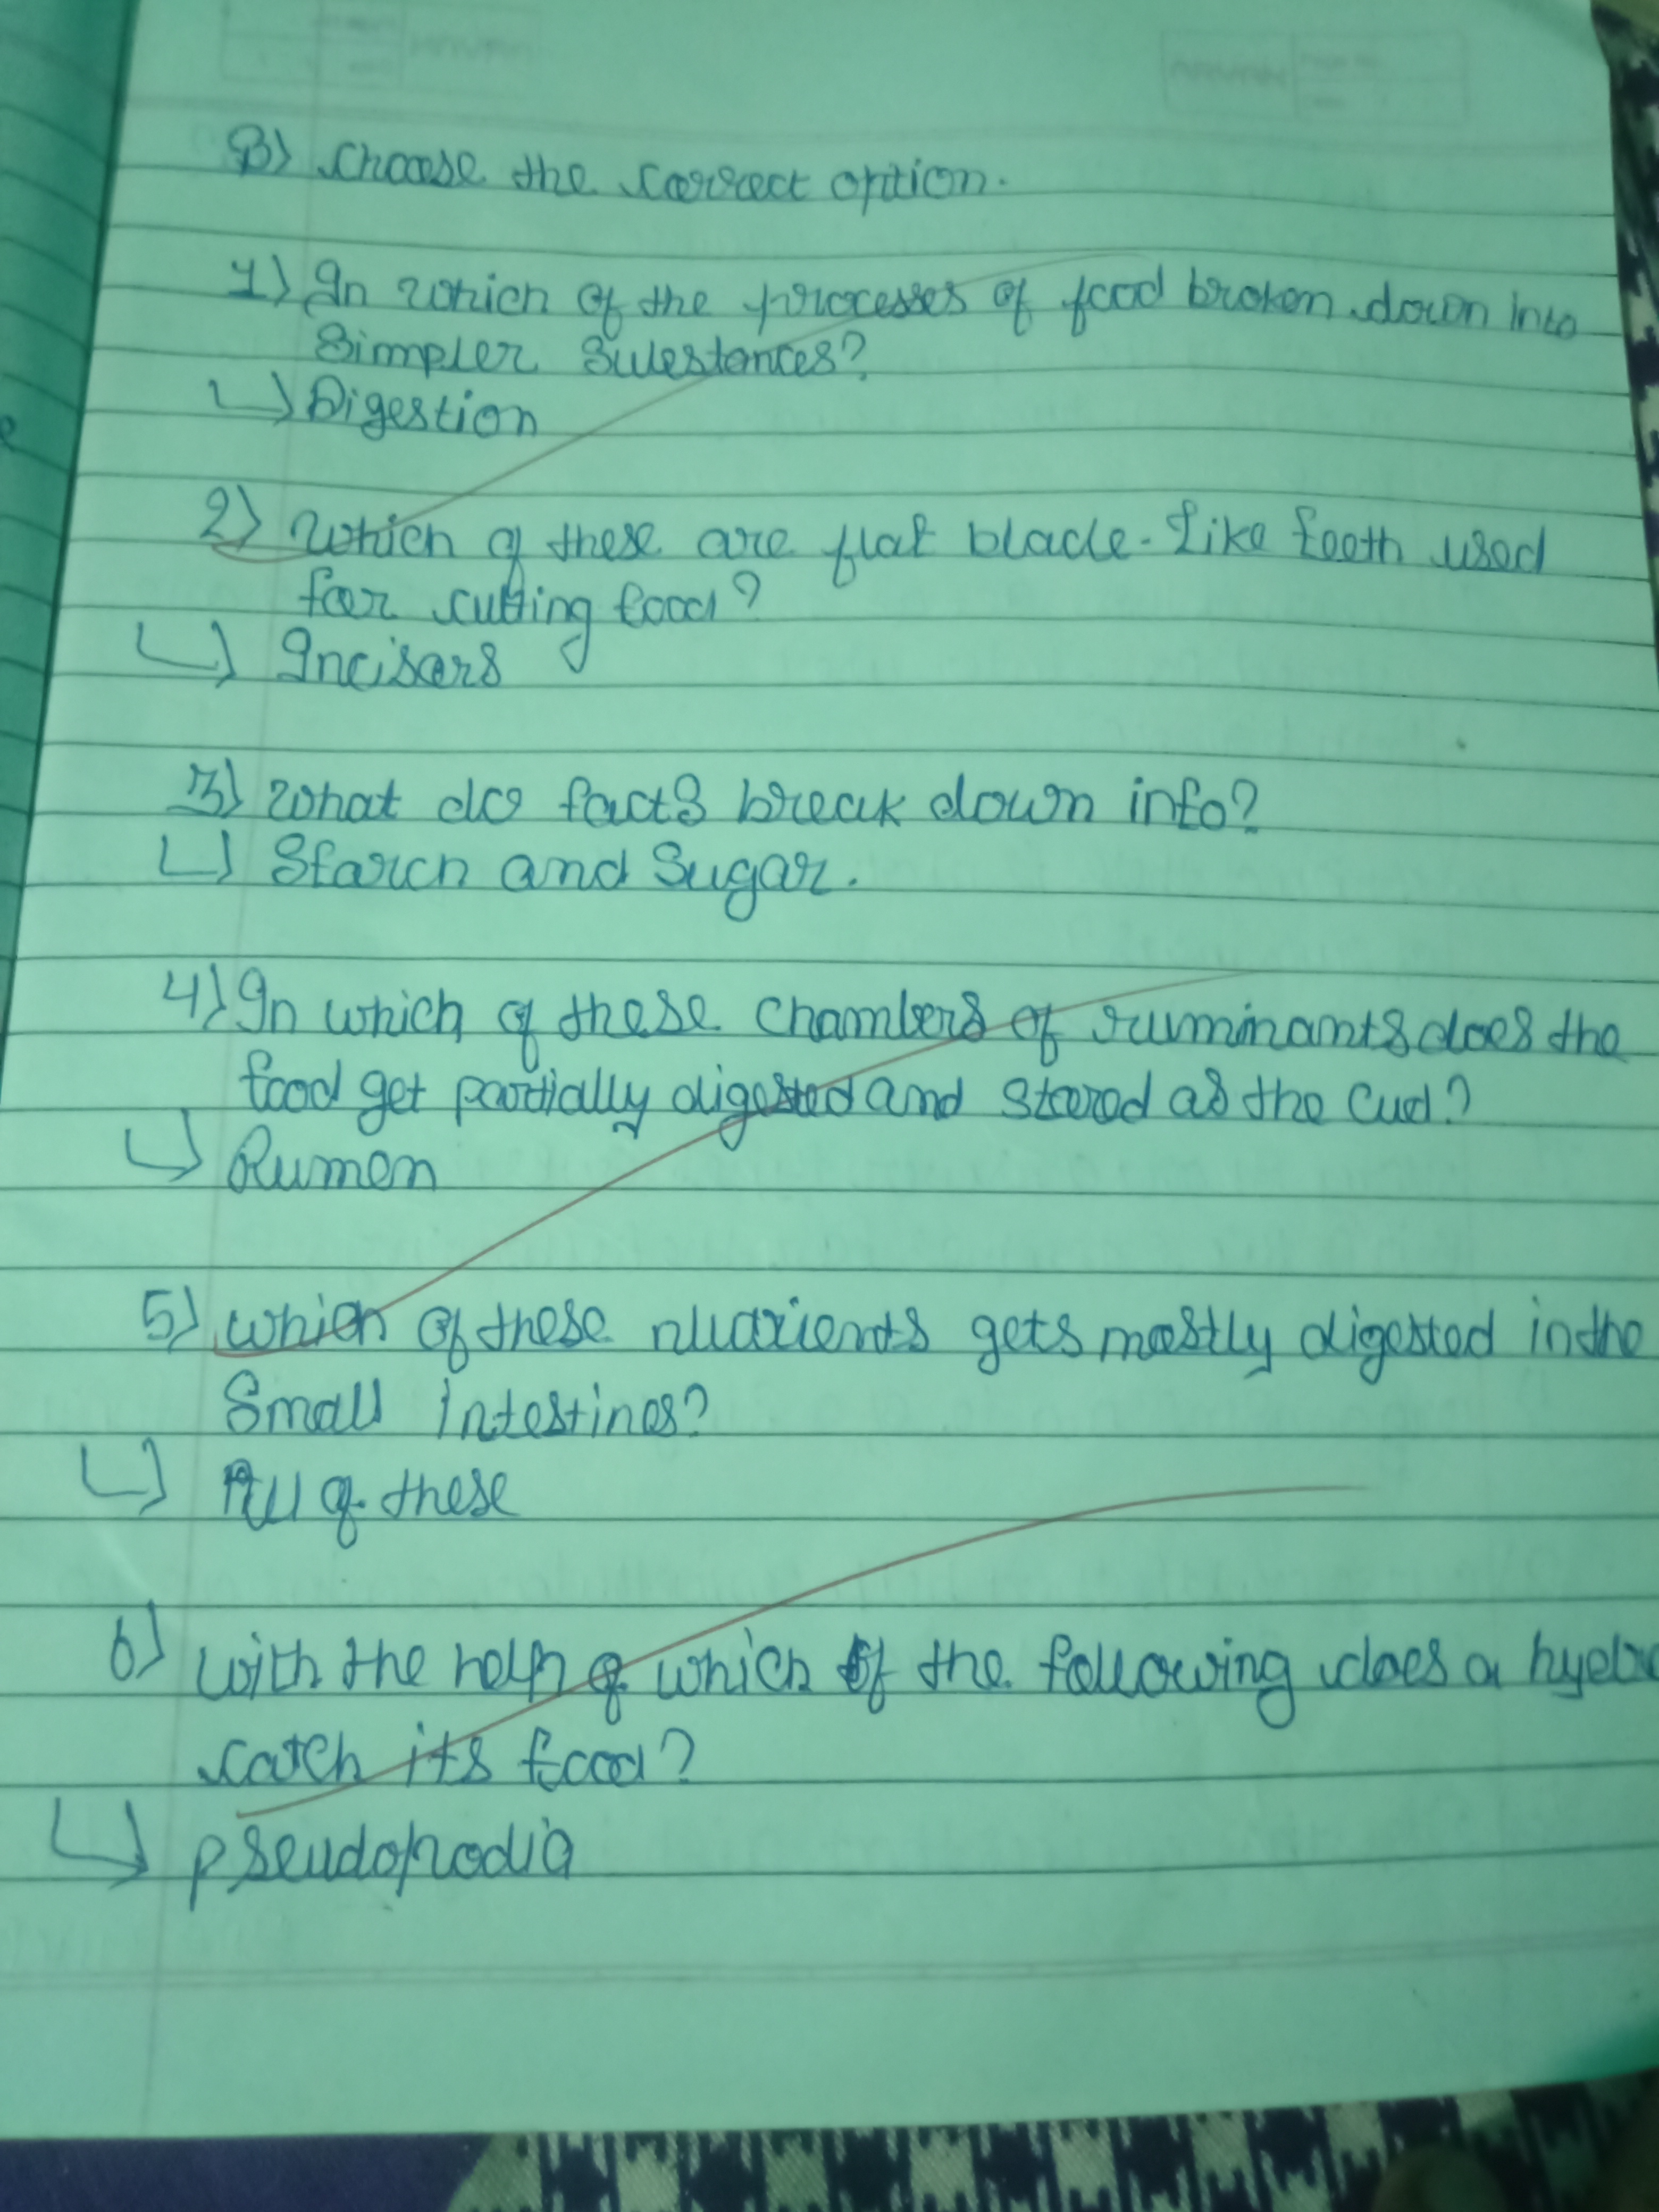 B) Choose the correct option.
1) In which of the processes of food broken down into
Simpler Sulestances?
Digestion
2) Which of these are flat blade-like teeth used
for cutting food?
Incisors
3) What do facts break down into?
Starch and Sugar.
4) In which of these chambers of ruminants does the
food get partially digested and stored as the cud?
Rumen
5) which of these nutrients gets mostly digested in the
Small intestines?
All of these
6) with the help of which of the following does a hydra
catch its food?
pseudopodia